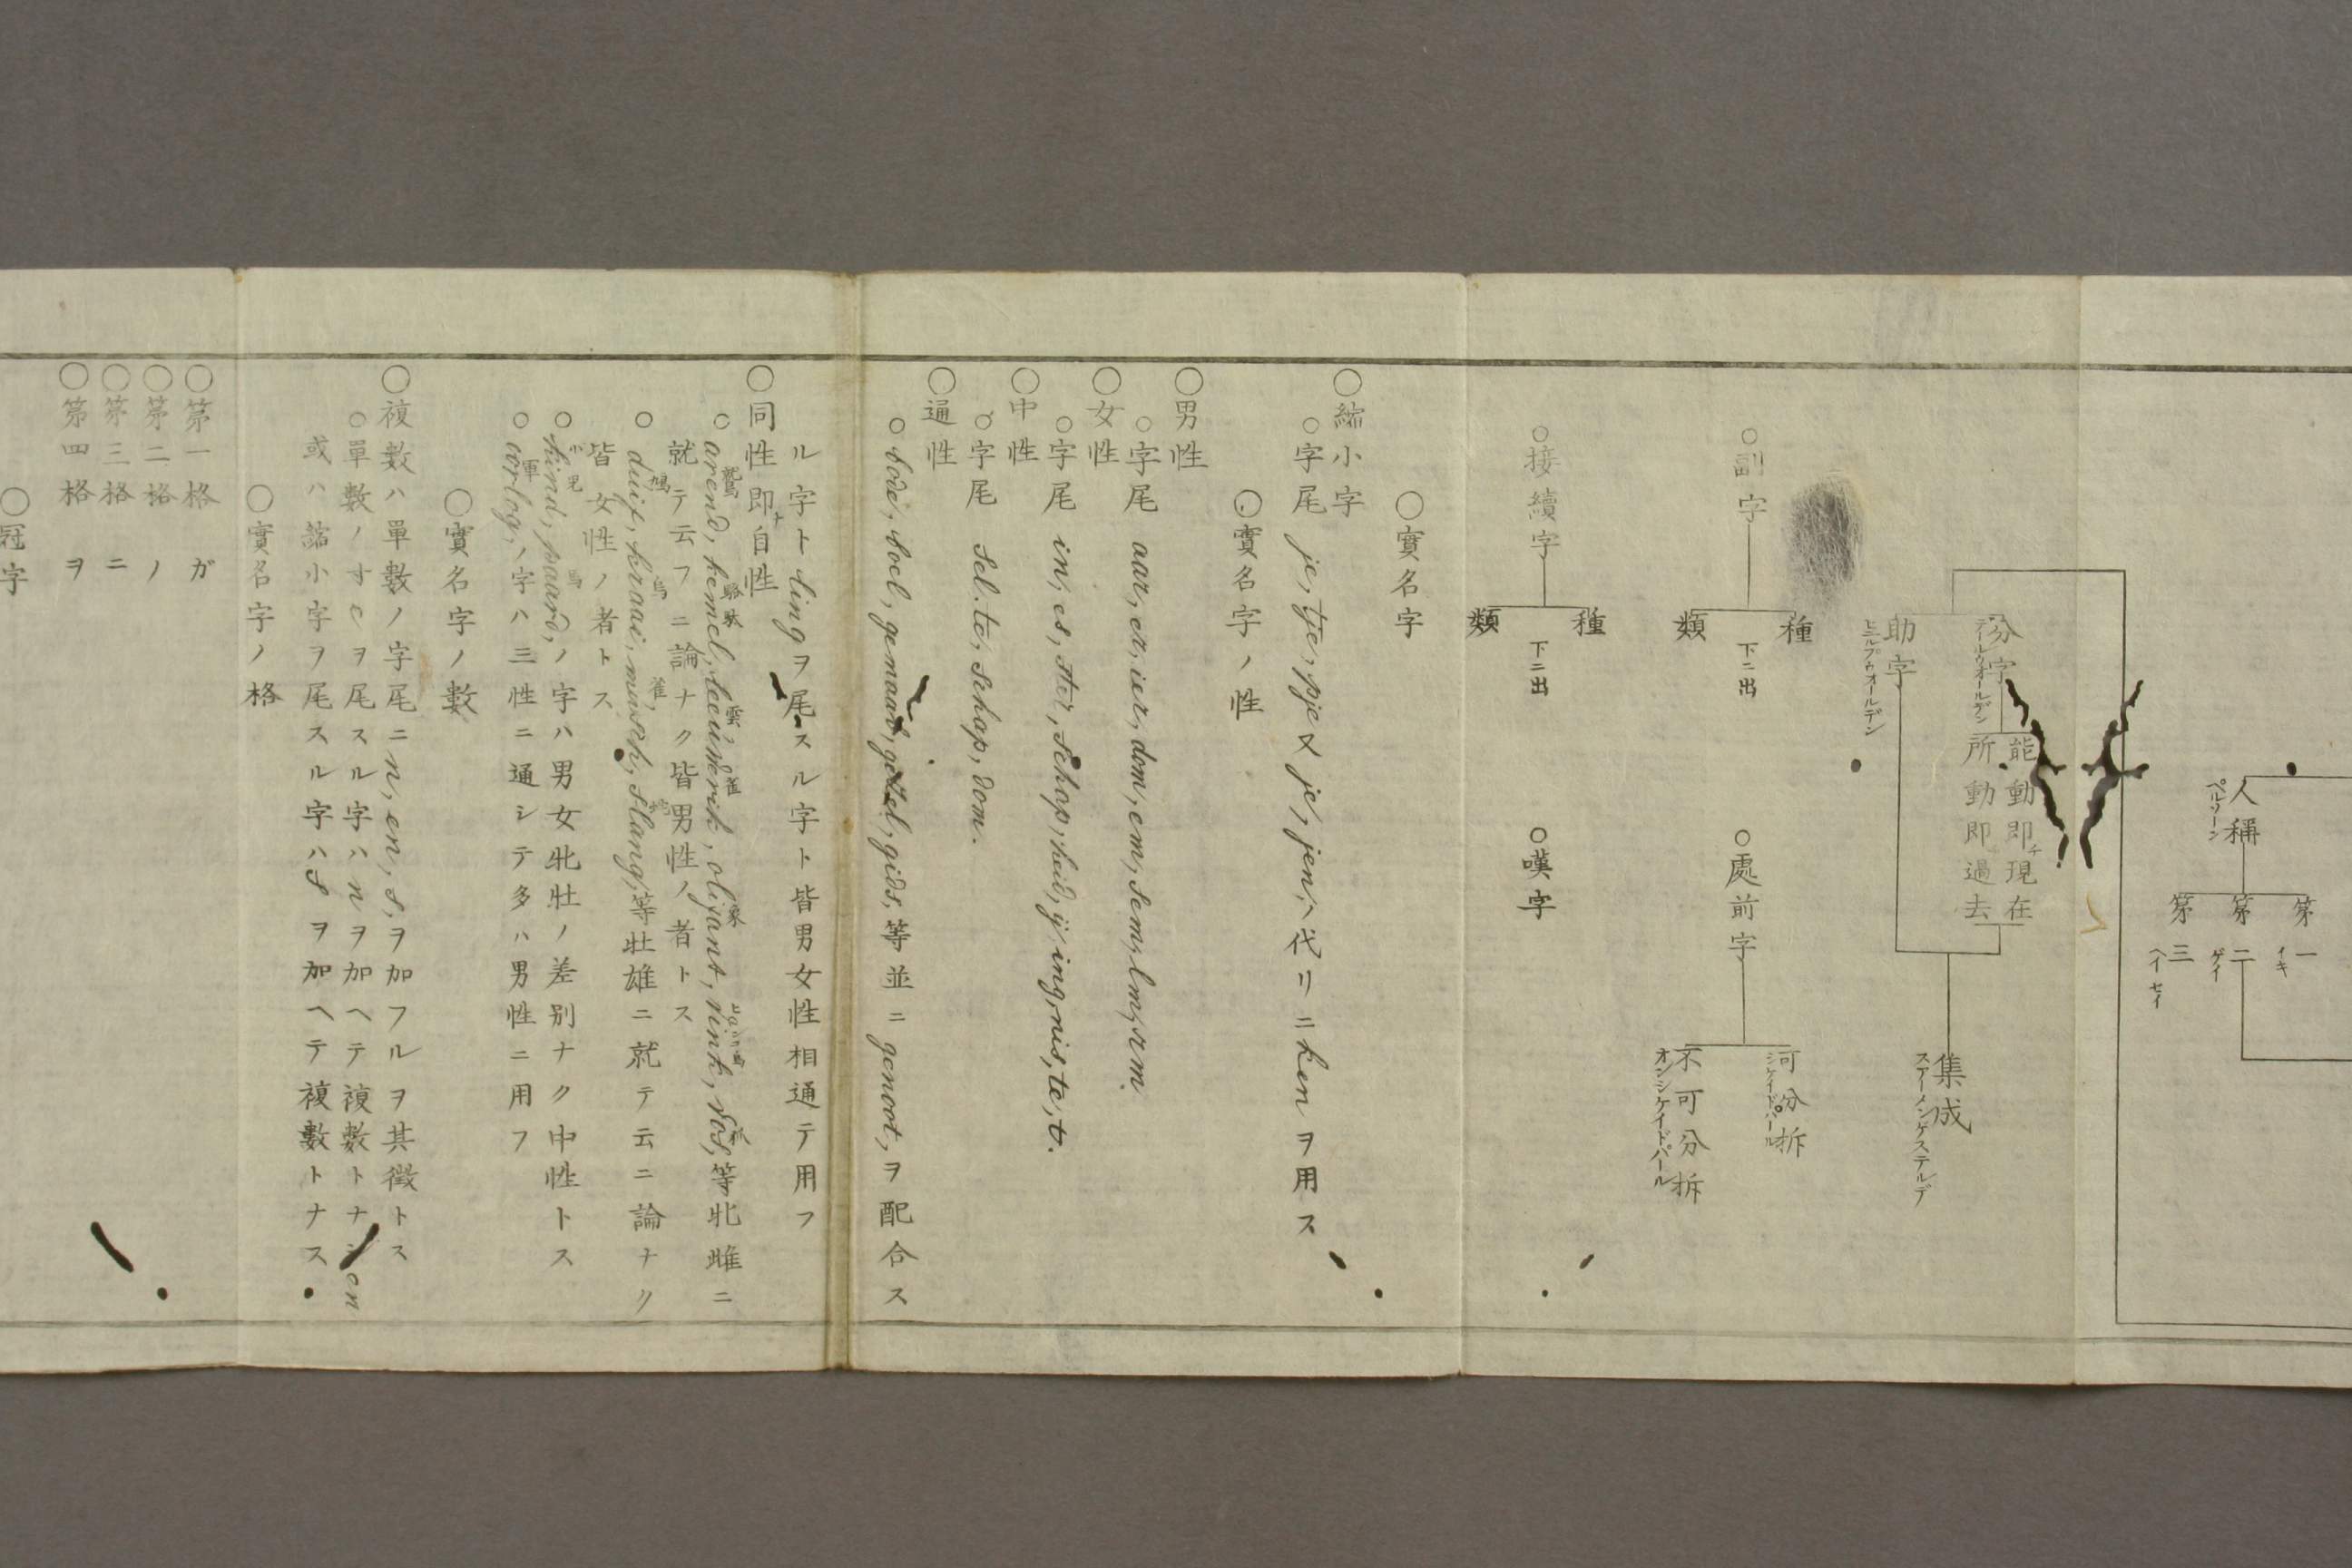 人稱
ペルソーン
第一
イキ
第二
ゲイ
第三
ヘイセイ
分字
デールウオールデン
能動即チ現在
所動即過去
助字
ヒュルプウオールデン
集成
スアーメンゲステルデ
○副字
種
類
下ニ出
○處前字
可分拆
シケイドバール
不可分拆
オンシケイドバール
○接續字
種
類
下ニ出
○嘆字
○實名字
○縮小字
○字尾 je, tje, pje 又 je, jen, ハ代リニ ken ヲ用ス
○實名字ノ性
○男性
○字尾 aar, er, ier, dom, em, sem, lm, rm.
○女性
○字尾 in, es, ster, schap, heid, ij, ing, nis, te, t.
○中性
○字尾 sel. te, schap, dom.
○通性
○bode, boel, gemaal, gezel, gids, 等並ニ genoot, ヲ配合ス
ル字ト ling ヲ尾スル字ト皆男女性相通テ用フ
○同性即チ自性
○arend, kemel, leeuwerik, olifant, vink, vos, 等牝雌ニ
就テ云フニ論ナク皆男性ノ者トス
○duif, kraai, musch, slang, 等牡雄ニ就テ云ニ論ナク
皆女性ノ者トス
○kind, paard, ノ字ハ男女牝牡ノ差別ナク中性トス
○oorlog, ノ字ハ三性ニ通シテ多ハ男性ニ用フ
○實名字ノ數
○複數ハ單數ノ字尾ニ n, en, s, ヲ加フルヲ其徴トス
○單數ノ e ヲ尾スル字ハ n ヲ加ヘテ複數トナシ en
或ハ縮小字ヲ尾スル字ハ s ヲ加ヘテ複數トナス
○實名字ノ格
○第一格 ガ
○第二格 ノ
○第三格 ニ
○第四格 ヲ
○冠字